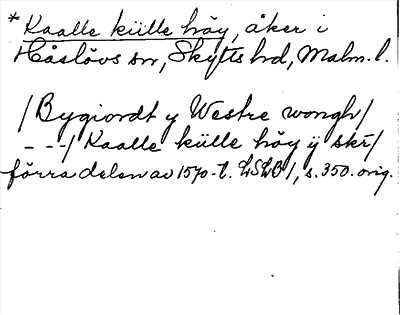 * Kaalle külle höy, åker i
Håslövs sn, Skytts hd, Malm. l.
/Bygiordt y Westre wongh/
---/ Kaalle külle höy ÿ skr̄/
förra delen av 1570-t. LSLB I, s. 350. orig.